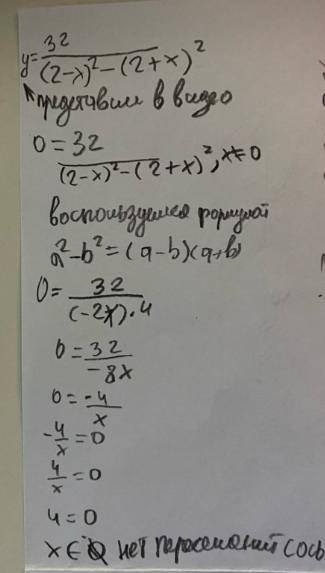 y=32/((2-x)²-(2+x)²)
представим в видео
0=32/((2-x)²-(2+x)²), x≠0
воспользуемся формулой
a²-b²=(a-b)(a+b)
0=32/((-2x)·4)
0=32/(-8x)
0=-4/x
-4/x=0
4/x=0
4=0
x∈ нет пересечений с ось